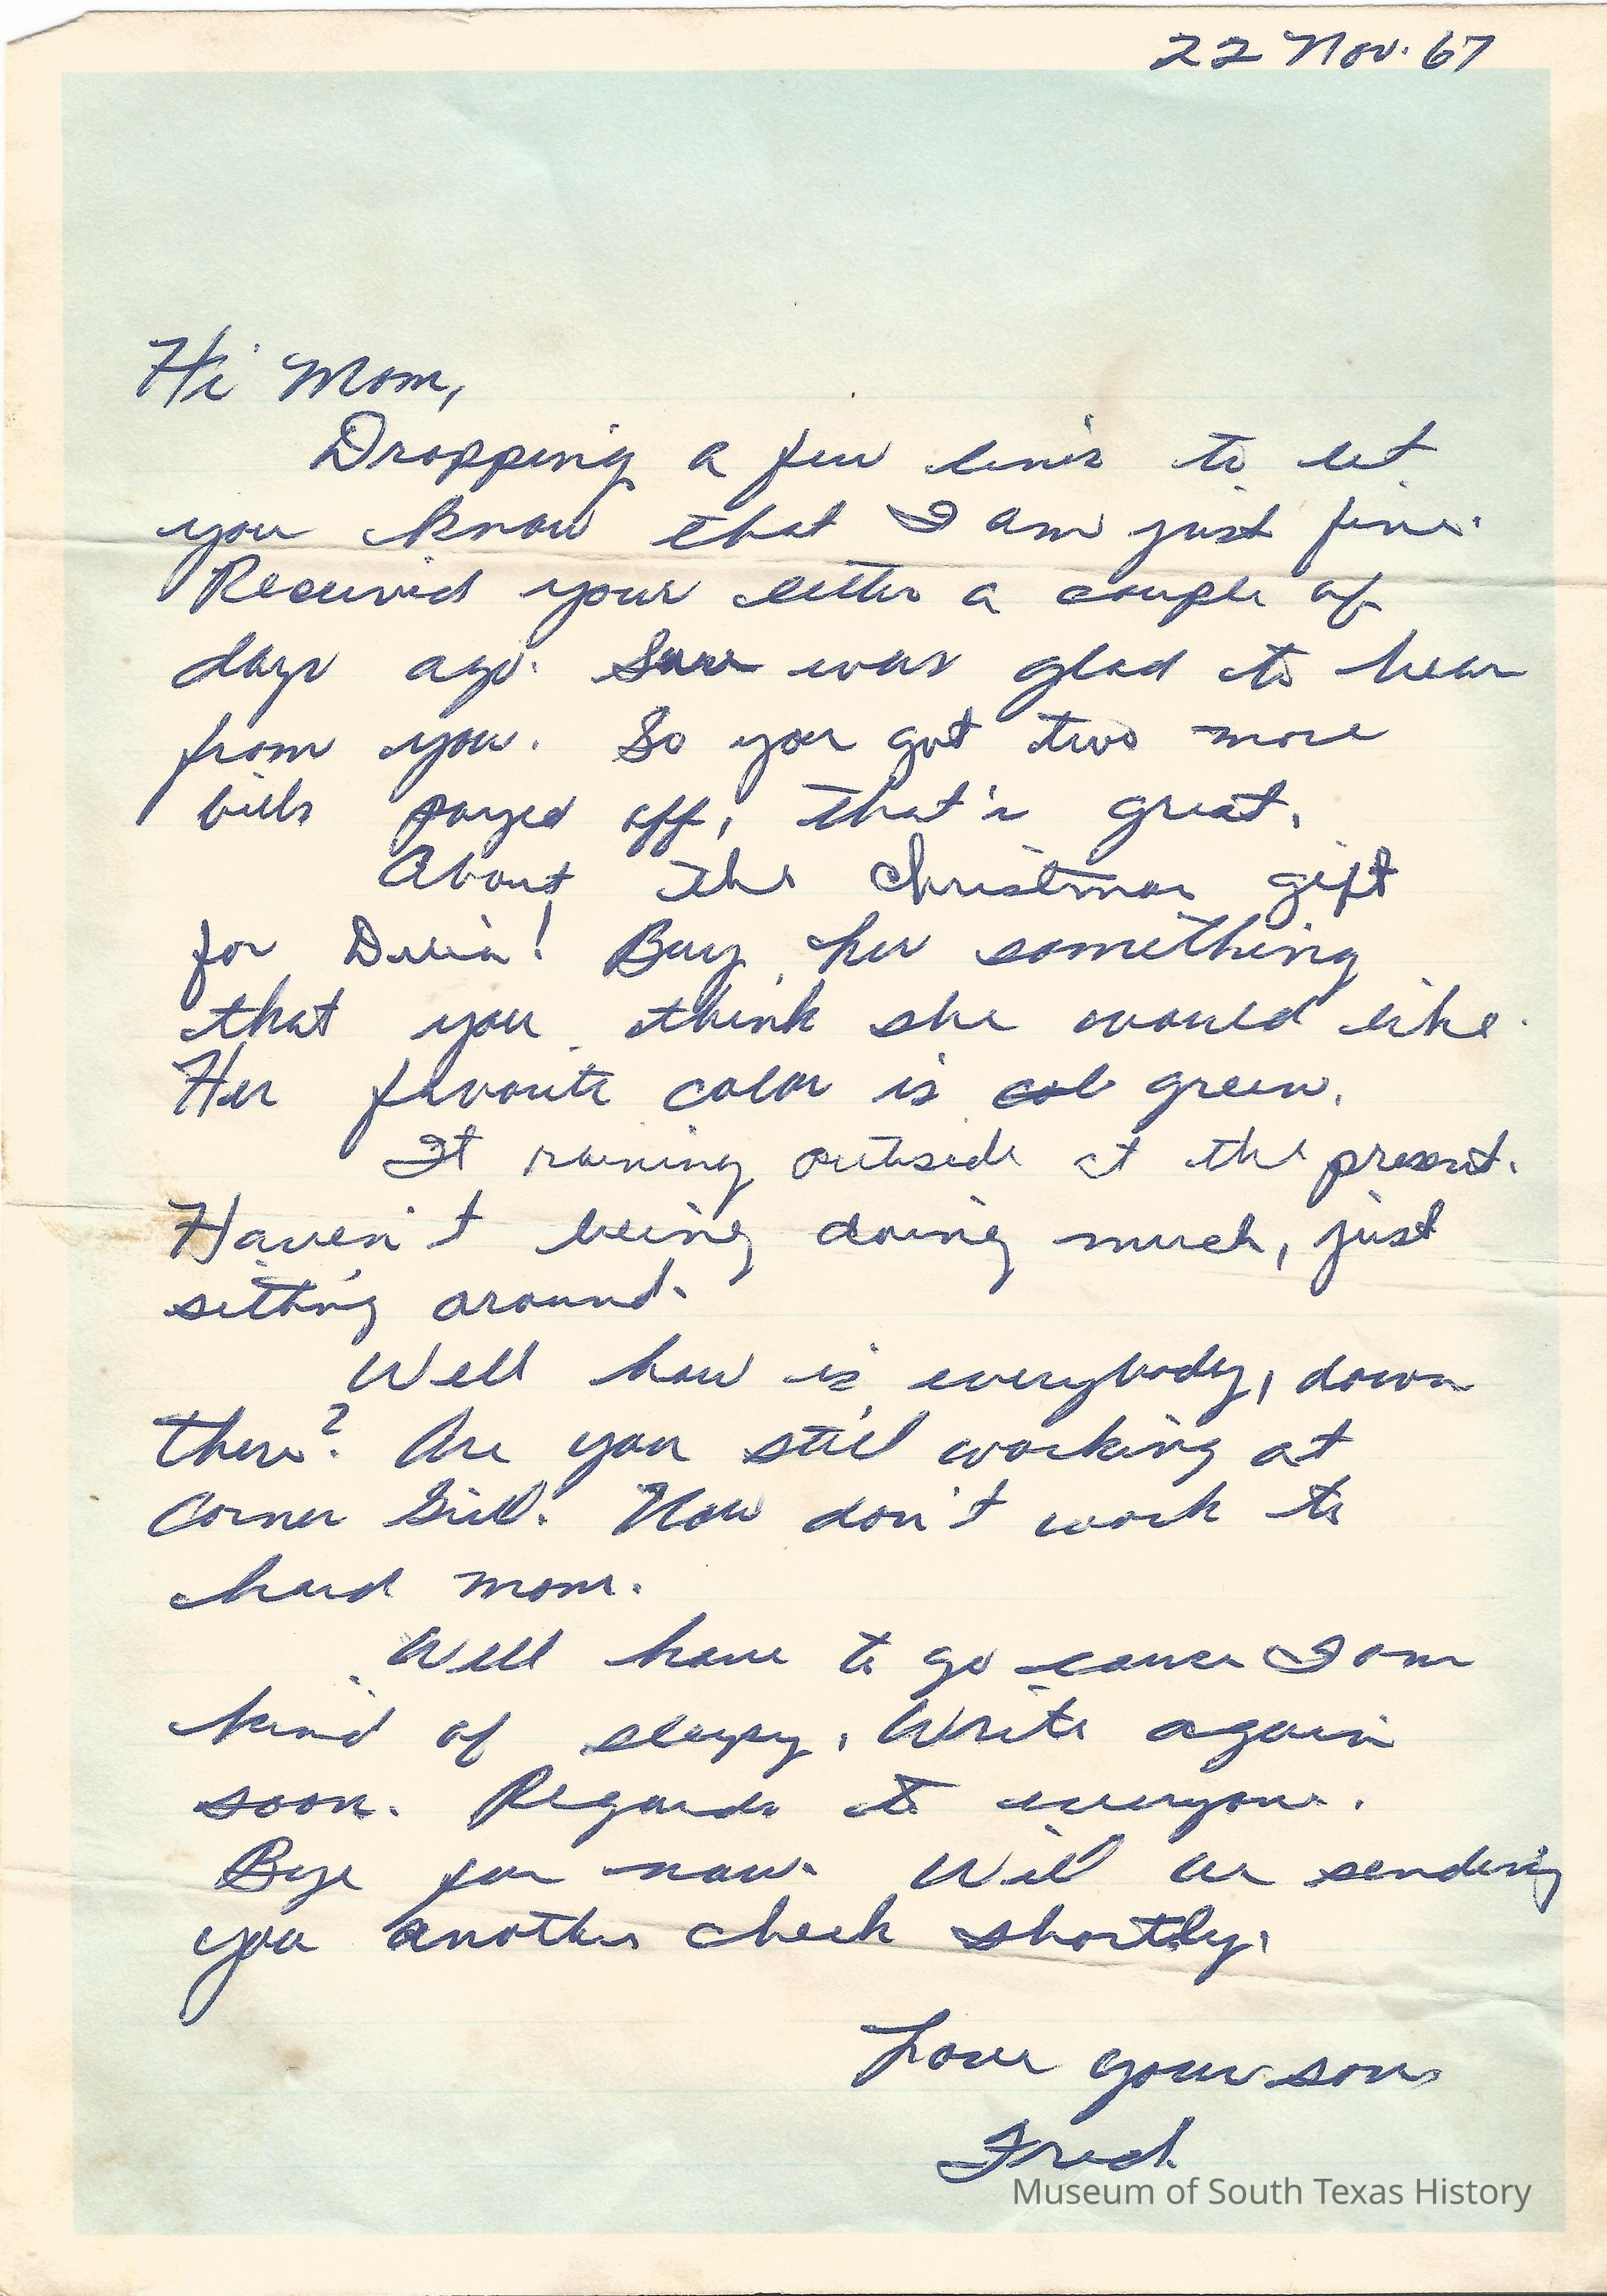 22 Nov. 67
Hi Mom,
Dropping a few lines to let
you know that I am just fine.
Received your letter a couple of
days ago. Sure was glad to hear
from you. So you got two more
bills payed off, that's great.
About the Christmas gift
for Delia! Buy her something
that you think she would like.
Her favorite color is col green.
It raining outside at the present.
Haven't being doing much, just
sitting around.
Well how is everybody, down
there? Are you still working at
Corner Grill. Now don't work to
hard mom.
Well have to go cause I am
kind of sleepy. Write again
soon. Regards to everyone.
Bye for now. Will be sending
you another check shortly.
Love your son
Fred
Museum of South Texas History